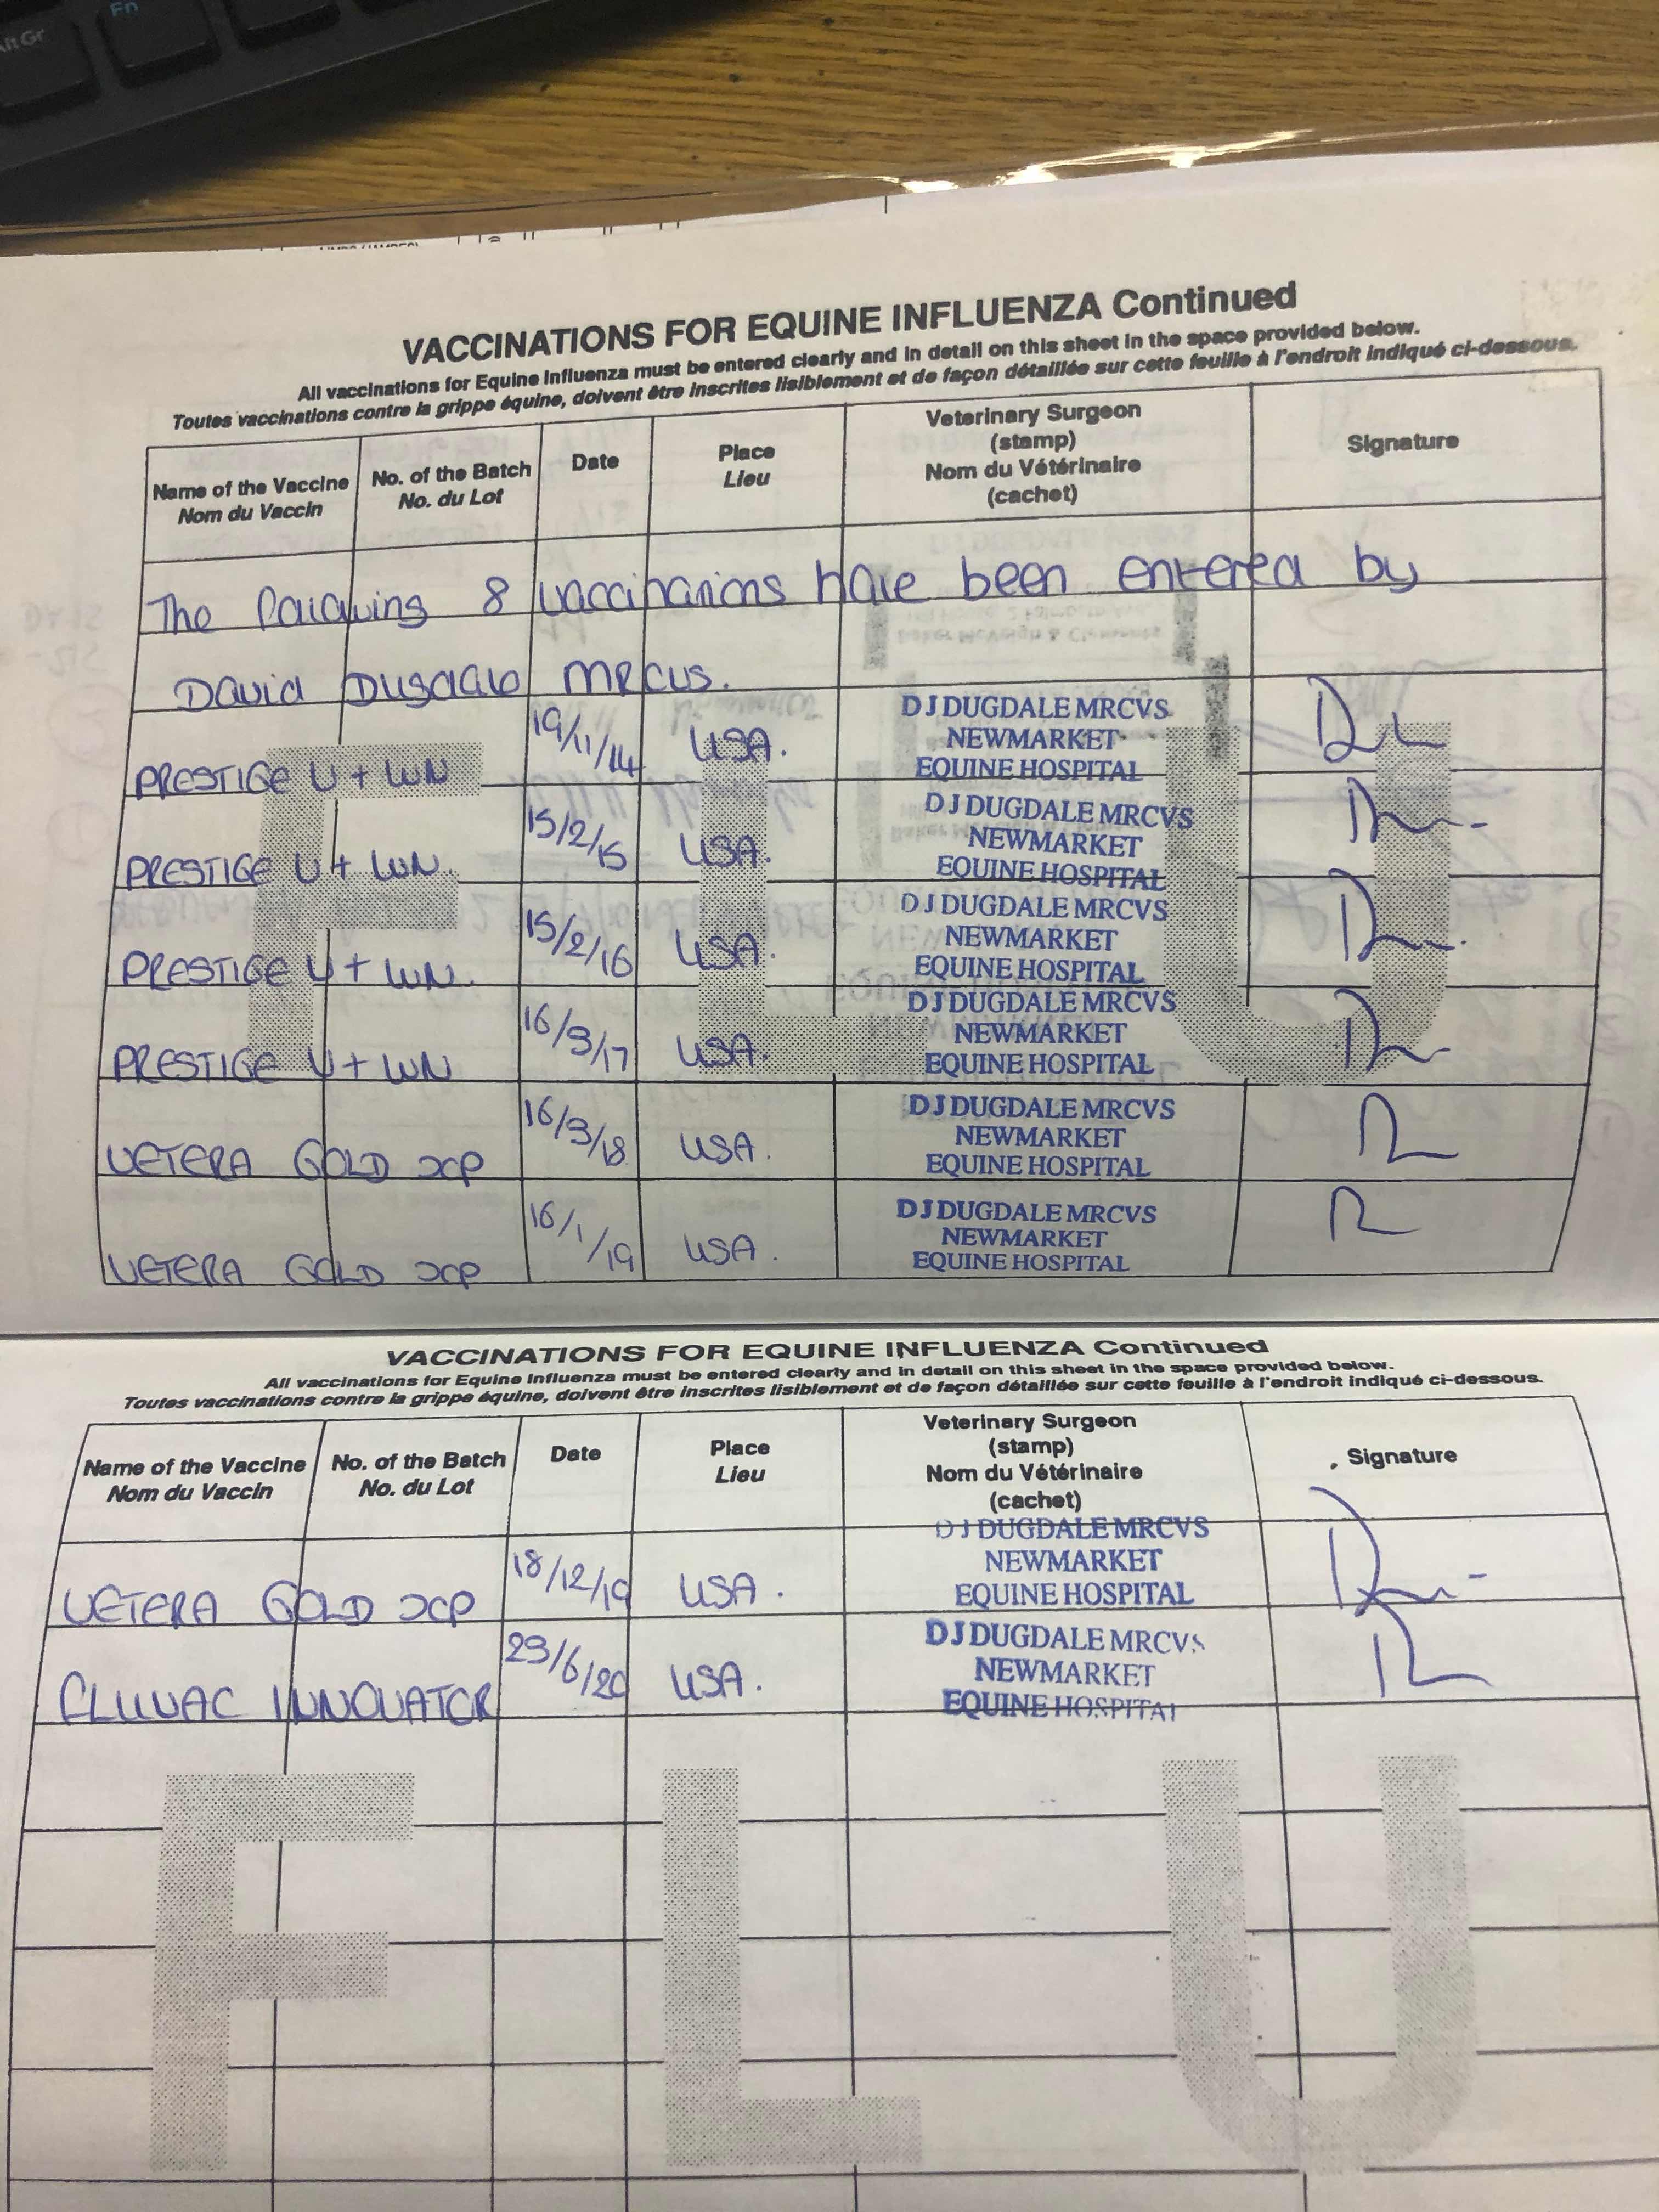 Alt Gr
Fn
VACCINATIONS FOR EQUINE INFLUENZA Continued
All vaccinations for Equine Influenza must be entered clearly and in detail on this sheet in the space provided below.
Toutes vaccinations contre la grippe équine, doivent être inscrites lisiblement et de façon détaillée sur cette feuille à l'endroit indiqué ci-dessous.
Name of the Vaccine
Nom du Vaccin
No. of the Batch
No. du Lot
Date
Place
Lieu
Veterinary Surgeon
(stamp)
Nom du Vétérinaire
(cachet)
Signature
The following 8 vaccinations have been entered by
David Dugdale MRCVS.
PRESTIGE V + WN 19/11/14 USA.
DJ DUGDALE MRCVS
NEWMARKET
EQUINE HOSPITAL
PRESTIGE V + WN. 15/2/15 USA.
DJ DUGDALE MRCVS
NEWMARKET
EQUINE HOSPITAL
PRESTIGE V + WN. 15/2/16 USA.
DJ DUGDALE MRCVS
NEWMARKET
EQUINE HOSPITAL
PRESTIGE V + WN 16/3/17 USA.
DJ DUGDALE MRCVS
NEWMARKET
EQUINE HOSPITAL
VETERA GOLD XP 16/3/18 USA.
DJ DUGDALE MRCVS
NEWMARKET
EQUINE HOSPITAL
VETERA GOLD XP 16/1/19 USA.
DJ DUGDALE MRCVS
NEWMARKET
EQUINE HOSPITAL
FLU
VACCINATIONS FOR EQUINE INFLUENZA Continued
All vaccinations for Equine Influenza must be entered clearly and in detail on this sheet in the space provided below.
Toutes vaccinations contre la grippe équine, doivent être inscrites lisiblement et de façon détaillée sur cette feuille à l'endroit indiqué ci-dessous.
Name of the Vaccine
Nom du Vaccin
No. of the Batch
No. du Lot
Date
Place
Lieu
Veterinary Surgeon
(stamp)
Nom du Vétérinaire
(cachet)
Signature
VETERA GOLD XP 18/12/19 USA.
DJ DUGDALE MRCVS
NEWMARKET
EQUINE HOSPITAL
FLUVAC INNOVATOR 23/6/20 USA.
DJ DUGDALE MRCVS
NEWMARKET
EQUINE HOSPITAL
FLU